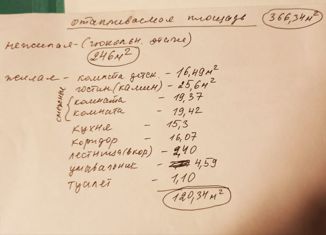 отапливаемая площадь 366,34м²
нежилая - (цокольн. этаж)
246м²
жилая - комната детск. - 16,49м²
гостин.(камин) - 25,6м²
смежные
комната - 19,37
комната - 19,42
кухня - 15,3
коридор - 16,07
лестница(вкор) - 2,40
умывальник - 4,59
туалет - 1,10
120,34м²